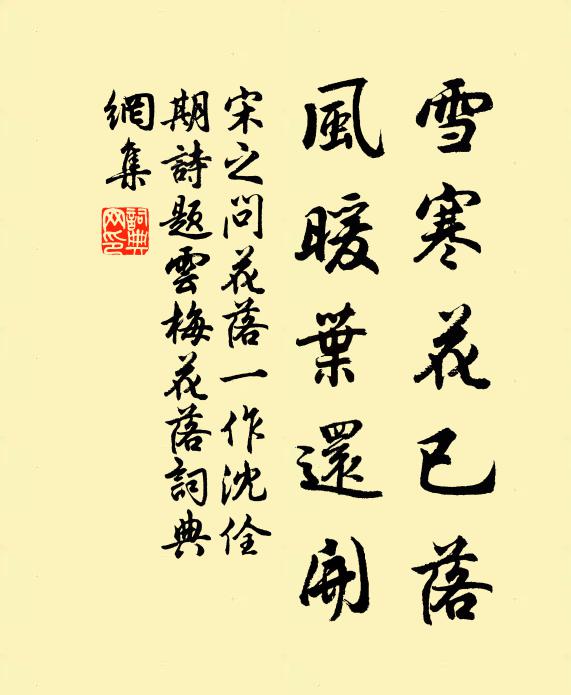 雪寒花已落
風暖葉還開
宋之问花落一作沈佺
期詩題雲梅花落詞典
網集
詞典网印